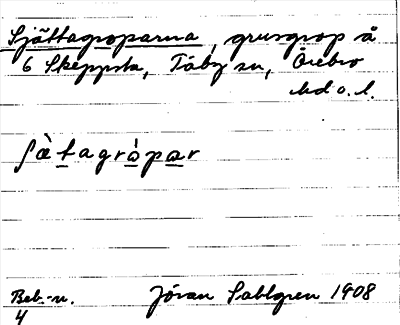 Sjättagroparna, grusgrop å
6 Skeppsta, Täby sn, Örebro
hd o. l.
ʃàtagròpar
Beb.-n. Jöran Sahlgren 1908
4